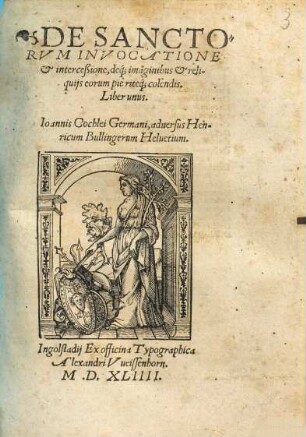 3
DE SANCTO-
RVM INVOCATIONE
& intercessione, deq; imaginibus & reli-
quijs eorum piè riteq; colendis.
Liber unus.
Ioannis Cochlei Germani, aduersus Hen-
ricum Bullingerum Heluetium.
Ingolstadij Ex officina Typographica
Alexandri Vueissenhorn.
M D. XLIIII.